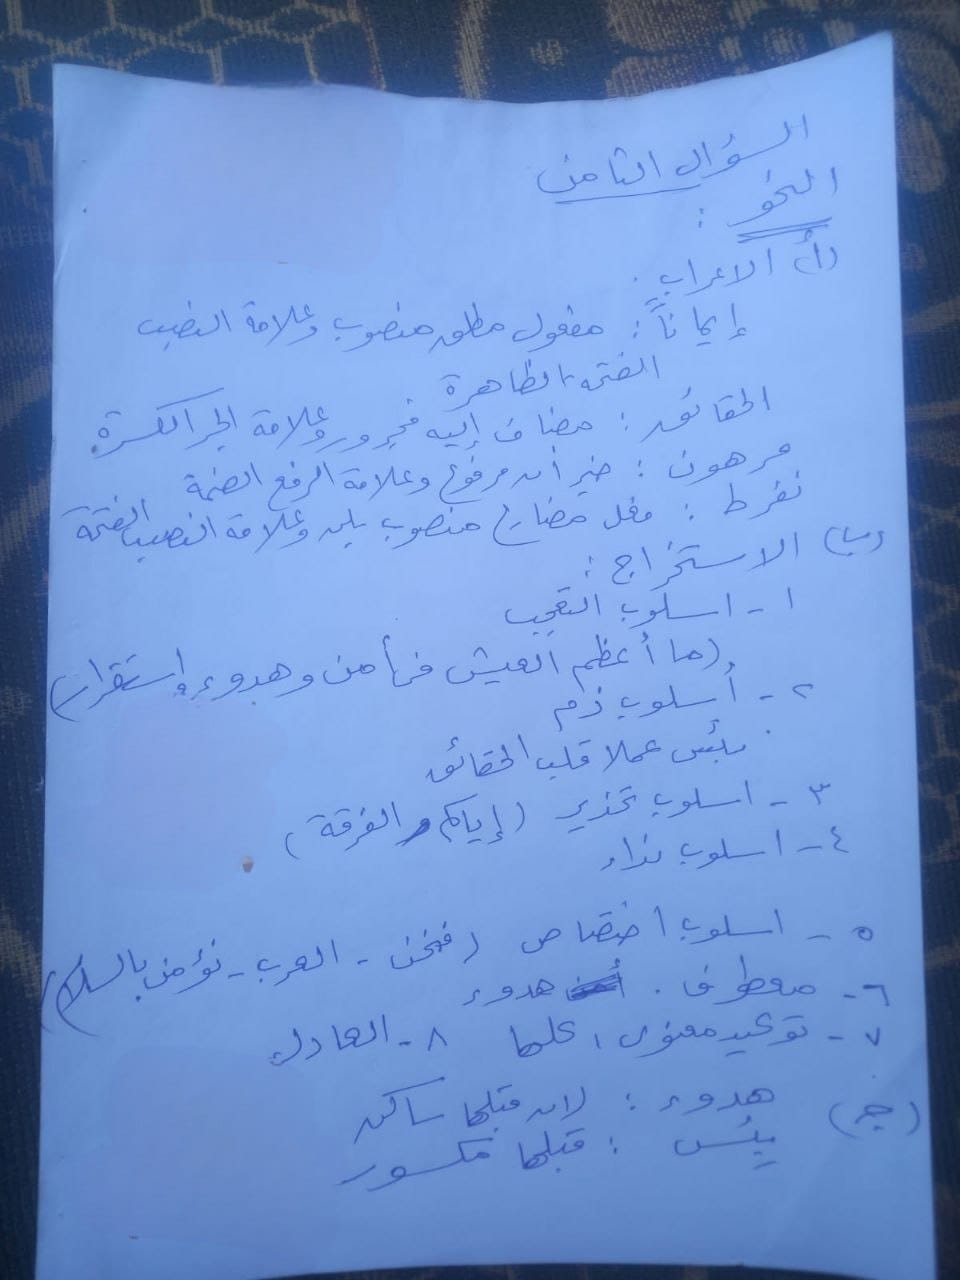 السؤال الثامن
النحو :
(أ) الاعراب :
إيماناً : مفعول مطلق منصوب وعلامة النصب
الفتحة الظاهرة
الحقائق : مضاف إليه مجرور وعلامة الجر الكسرة.
مرهون : خبر أن مرفوع وعلامة الرفع الضمة
نفرط : فعل مضارع منصوب بلن وعلامة النصب الفتحة
(ب) الاستخراج :
١ - اسلوب التعجب
(ما أعظم العيش في أمن وهدوء واستقرار)
٢ - أسلوب ذم
بئس عملا قلب الحقائق
٣ - اسلوب تحذير (إياكم والفرقة)
٤ - اسلوب نداء
٥ - اسلوب اختصاص (فنحن - العرب - نؤمن بالسلام)
٦ - معطوف . هدوء
٧ - توكيد معنوى ، كلها ٨ - العادل
(جـ) هدوء : لان قبلها ساكن
بئس : قبلها مكسور